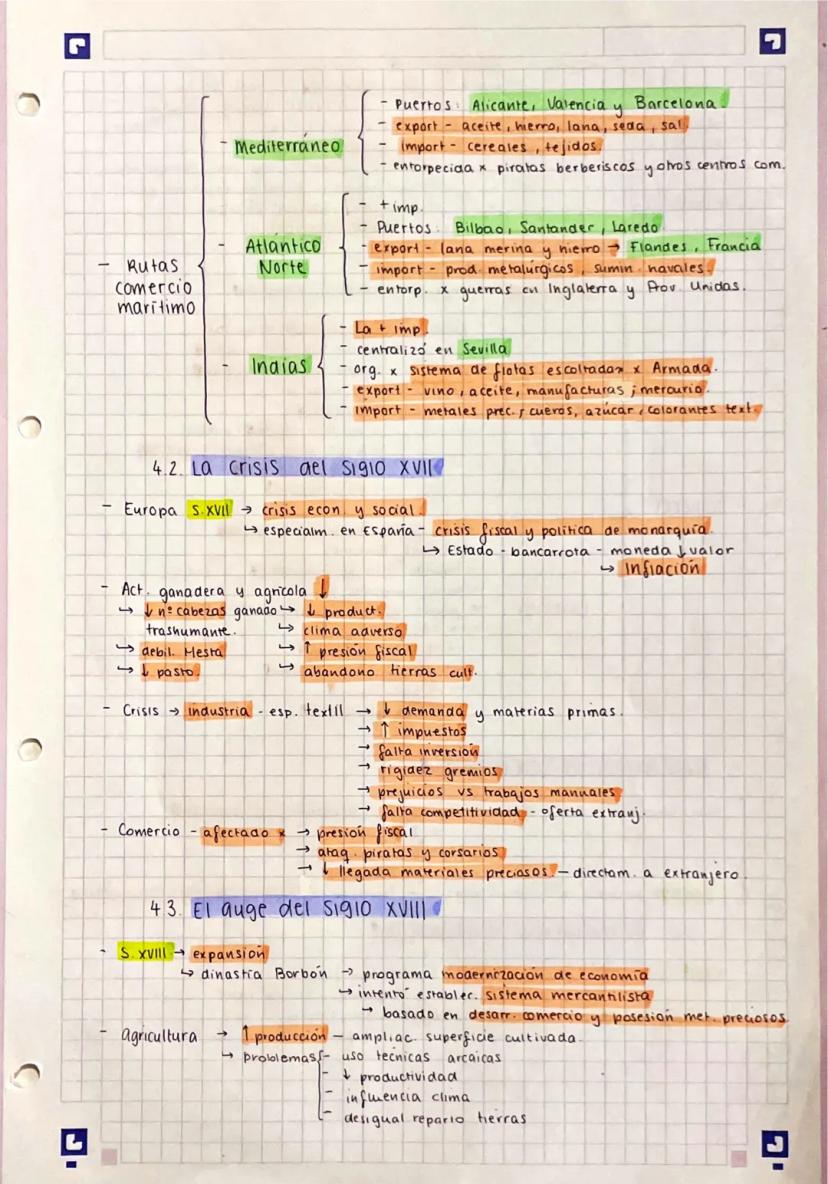 - Puertos: Alicante, Valencia y Barcelona.
- export - aceite, hierro, lana, seda, sal
- Mediterráneo
- import - cereales, tejidos.
- entorpecida x piratas berberiscos y otros centros com.
- + imp.
- Puertos: Bilbao, Santander, Laredo
- Atlántico Norte
- export - lana merina y hierro → Flandes, Francia
- import - prod. metalúrgicos, sumin. navales.
- entorp. x guerras en Inglaterra y Prov. Unidas.
- Rutas comercio marítimo
- La + imp.
- centralizó en Sevilla
- Indias
- org. x sistema de flotas escoltadas x Armada.
- export - vino, aceite, manufacturas, mercurio.
- import - metales prec., cueros, azúcar, colorantes text.
4.2. La crisis del siglo XVII
- Europa S.XVII → crisis econ. y social.
↳ especialm. en España - crisis fiscal y política de monarquía.
↳ Estado - bancarrota - moneda ↓ valor
↳ Inflación
- Act. ganadera y agrícola ↓
↳ ↓ nº cabezas ganado ↳ ↓ product.
trashumante. ↳ clima adverso
↳ debil. Mesta ↳ ↑ presión fiscal
↳ ↓ pasto. ↳ abandono tierras cult.
- Crisis → industria - esp. textil → ↓ demanda y materias primas.
→ ↑ impuestos
→ falta inversión
→ rigidez gremios
→ prejuicios vs trabajos manuales
→ falta competitividad - oferta extranj.
- Comercio - afectado x → presión fiscal
→ ataq. piratas y corsarios
→ ↓ llegada materiales preciosos. - directam. a extranjero.
4.3. El auge del siglo XVIII
- S. XVIII → expansión
↳ dinastía Borbón → programa modernización de economía
↳ intentó establer. sistema mercantilista
↳ basado en desarr. comercio y posesión met. preciosos
- Agricultura → ↑ producción - ampliac. superficie cultivada.
↳ problemas - uso técnicas arcaicas
- ↓ productividad
- influencia clima
- desigual reparto tierras